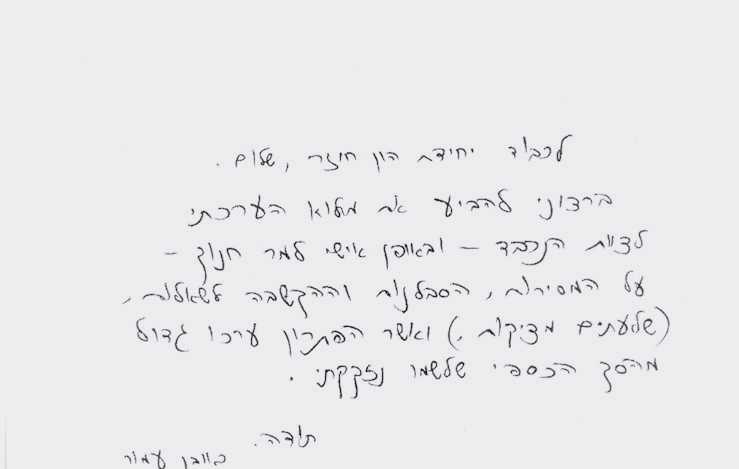 לכבוד יחידת הון חוזר, שלום.
ברצוני להביע את מלוא הערכתי
לצוות הנכבד – ובאופן אישי למר חנוך –
על המסירות, הסבלנות וההקשבה לשאלות,
(שלעתים מציקות,) ואשר הפתרון ערכו גדול
מהסך הכספי שלשמו נזקקתי.
תודה.